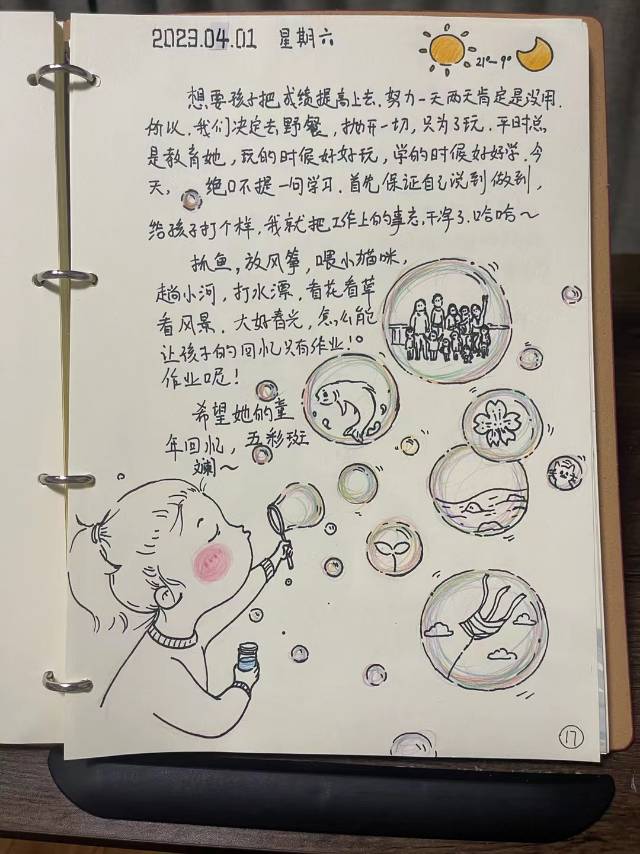 2023.04.01 星期六
21°~9°
想要孩子把成绩提高上去,努力一天两天肯定是没用.
所以,我们决定去野餐,抛开一切,只为了玩.平时总
是教育她,玩的时候好好玩,学的时候好好学.今
天, 绝口不提一句学习.首先保证自己说到做到,
给孩子打个样,我就把工作上的事忘干净了.哈哈~
抓鱼,放风筝,喂小猫咪,
趟小河,打水漂,看花看草
看风景.大好春光,怎么能
让孩子的回忆只有作业!
作业呢!
希望她的童
年回忆,五彩斑
斓~
17